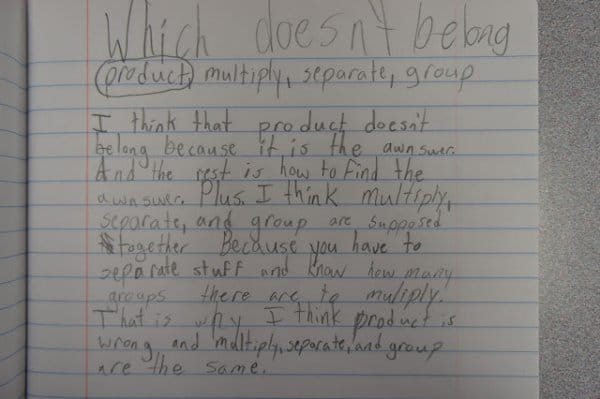 Which doesn't belong
product, multiply, separate, group
I think that product doesn't
belong because it is the awnswer.
And the rest is how to find the
awnswer. Plus. I think multiply,
separate, and group are supposed
together Because you have to
separate stuff and know how many
groups there are to muliply.
That is why I think product is
wrong and multiply, separate, and group
are the same.